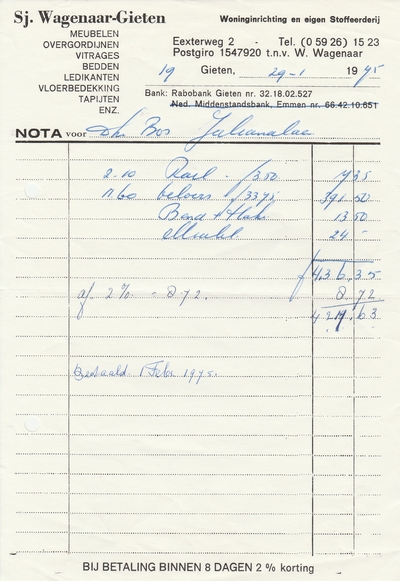 Sj. Wagenaar-Gieten
Woninginrichting en eigen Stoffeerderij
MEUBELEN
OVERGORDIJNEN
VITRAGES
BEDDEN
LEDIKANTEN
VLOERBEDEKKING
TAPIJTEN
ENZ.
Eexterweg 2 - Tel. (0 59 26) 15 23
Postgiro 1547920 t.n.v. W. Wagenaar
19 Gieten, 29-1 1975
Bank: Rabobank Gieten nr. 32.18.02.527
Ned. Middenstandsbank, Emmen nr. 66.42.10.651
NOTA voor Dhr Bos Julianalaan
2.10 Rail - /3.50 7 35
11.60 velours /33.75 391.50
Band + Haken 13 50
24 -
f 436.35
af 2% - 8 72. 8.72
427.63
Betaald 1 Febr 1975.
BIJ BETALING BINNEN 8 DAGEN 2 % korting